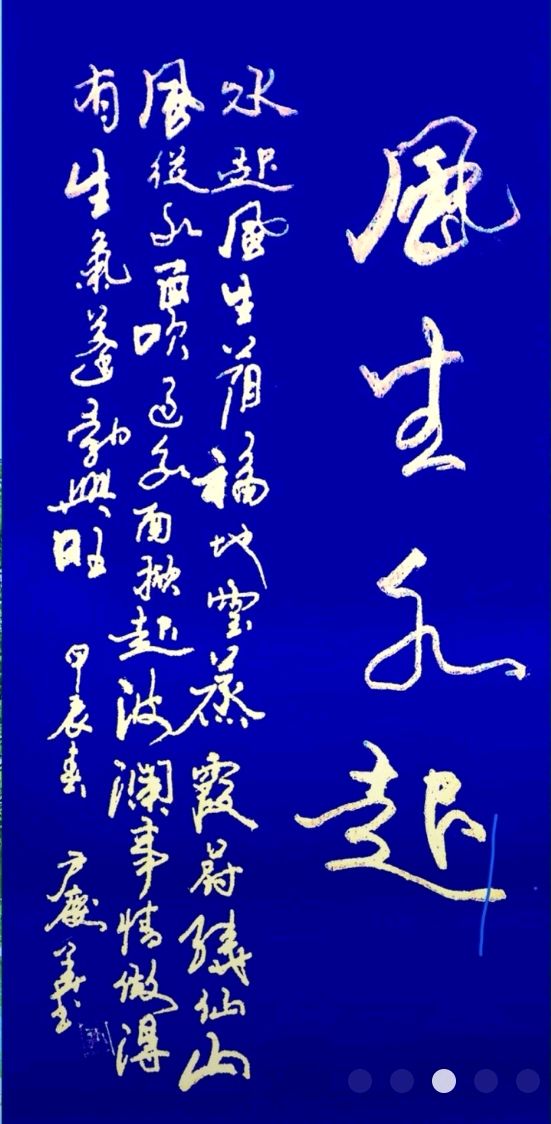 風生水起
水起風生福地雲蒸霞蔚繞仙山
風從水面吹過水面掀起波瀾事情做得
有生氣蓬勃興旺 甲辰春 方慶義書